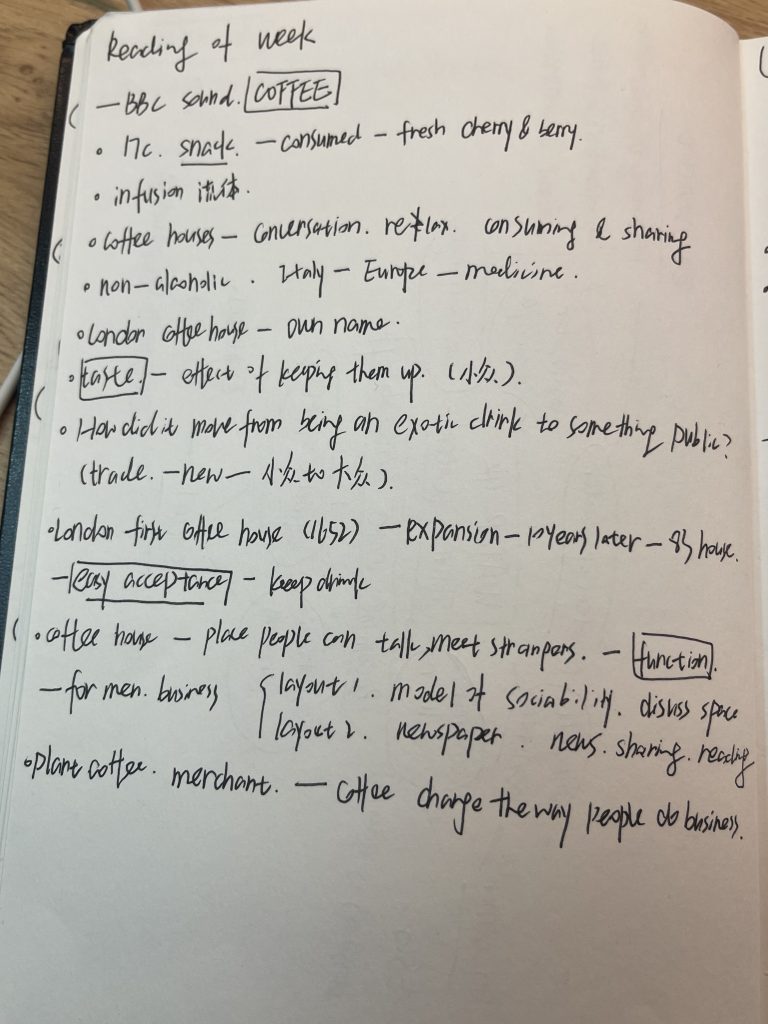 Reading of week
— BBC sound. COFFEE
• 17c. snack. — consumed — fresh cherry & berry.
• infusion 流体.
• coffee houses — conversation. relax. consuming & sharing
• non-alcoholic. Italy — Europe — medicine.
• London coffee house — own name.
• taste. — effect of keeping them up. (小众).
• How did it move from being an exotic drink to something public?
(trade. — new — 小众 to 大众).
• London first coffee house (1652) — expansion — 10 years later — 83 house.
— easy acceptance — keep drink
• coffee house — place people can talk, meet strangers. — function.
— for men. business { layout 1. model of sociability. discuss space
layout 2. newspaper. news. sharing. reading
• plant coffee. merchant. — coffee change the way people do business.